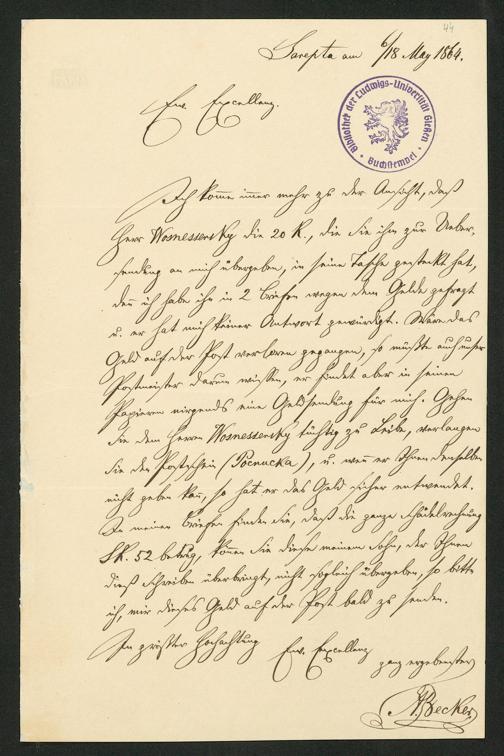 44
Sarepta am 6/18 May 1864.
Ew. Excellenz.
Bibliothek der Ludwigs-Universität Gießen
Buchstempel
Ich komme immer mehr zu der Ansicht, daß
Herr Wosnessensky die 20 R., die Sie ihm zur Ueber-
sendung an mich übergeben, in seine Tasche gesteckt hat,
denn ich habe ihn in 2 Briefen wegen dem Gelde gefragt
u. er hat mich keiner Antwort gewürdigt. Wäre das
Geld auf der Post verloren gegangen, so müßte auch unser
Postmeister darum wissen, er findet aber in seinen
Papieren nirgends eine Geldsendung für mich. Gehen
Sie dem Herrn Wosnessensky tüchtig zu Leibe, verlangen
Sie den Postschein (Росписка), u. wenn er Ihnen denselben
nicht geben kann, so hat er das Geld sicher entwendet.
In meinen Briefen finden Sie, daß die ganze Schädelrechnung
SR. 52 betrug, können Sie diese meinem Sohn, der Ihnen
dieß Schreiben überbringt, nicht sogleich übergeben, so bitte
ich, mir dieses Geld auf der Post bald zu senden.
In größter Hochachtung
Ew. Excellenz
ganz ergebenster
ABecker